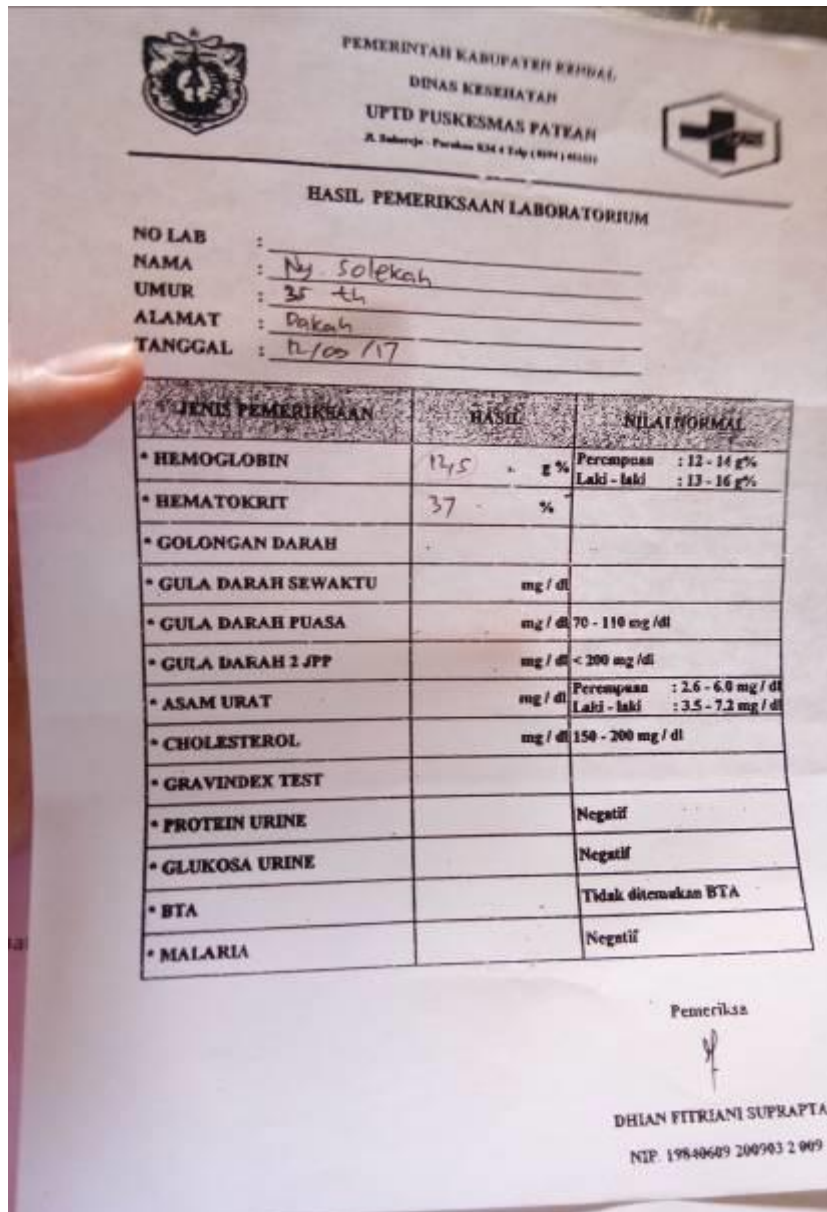 PEMERINTAH KABUPATEN KENDAL
DINAS KESEHATAN
UPTD PUSKESMAS PATEAN
Jl. Sukorejo - Parakan KM 4 Telp ( 0294 )
HASIL PEMERIKSAAN LABORATORIUM
NO LAB :
NAMA : Ny. Solekah
UMUR : 35 th
ALAMAT : Pakah
TANGGAL : 12/05/17
JENIS PEMERIKSAAN HASIL NILAI NORMAL
* HEMOGLOBIN 12,5 g% Perempuan : 12 - 14 g%
Laki - laki : 13 - 16 g%
* HEMATOKRIT 37 %
* GOLONGAN DARAH
* GULA DARAH SEWAKTU mg / dl
* GULA DARAH PUASA mg / dl 70 - 110 mg /dl
* GULA DARAH 2 JPP mg / dl < 200 mg /dl
* ASAM URAT mg / dl Perempuan : 2.6 - 6.0 mg / dl
Laki - laki : 3.5 - 7.2 mg / dl
* CHOLESTEROL mg / dl 150 - 200 mg / dl
* GRAVINDEX TEST
* PROTEIN URINE Negatif
* GLUKOSA URINE Negatif
* BTA Tidak ditemukan BTA
* MALARIA Negatif
Pemeriksa
DHIAN FITRIANI SUPRAPTA
NIP. 19840609 200903 2 009